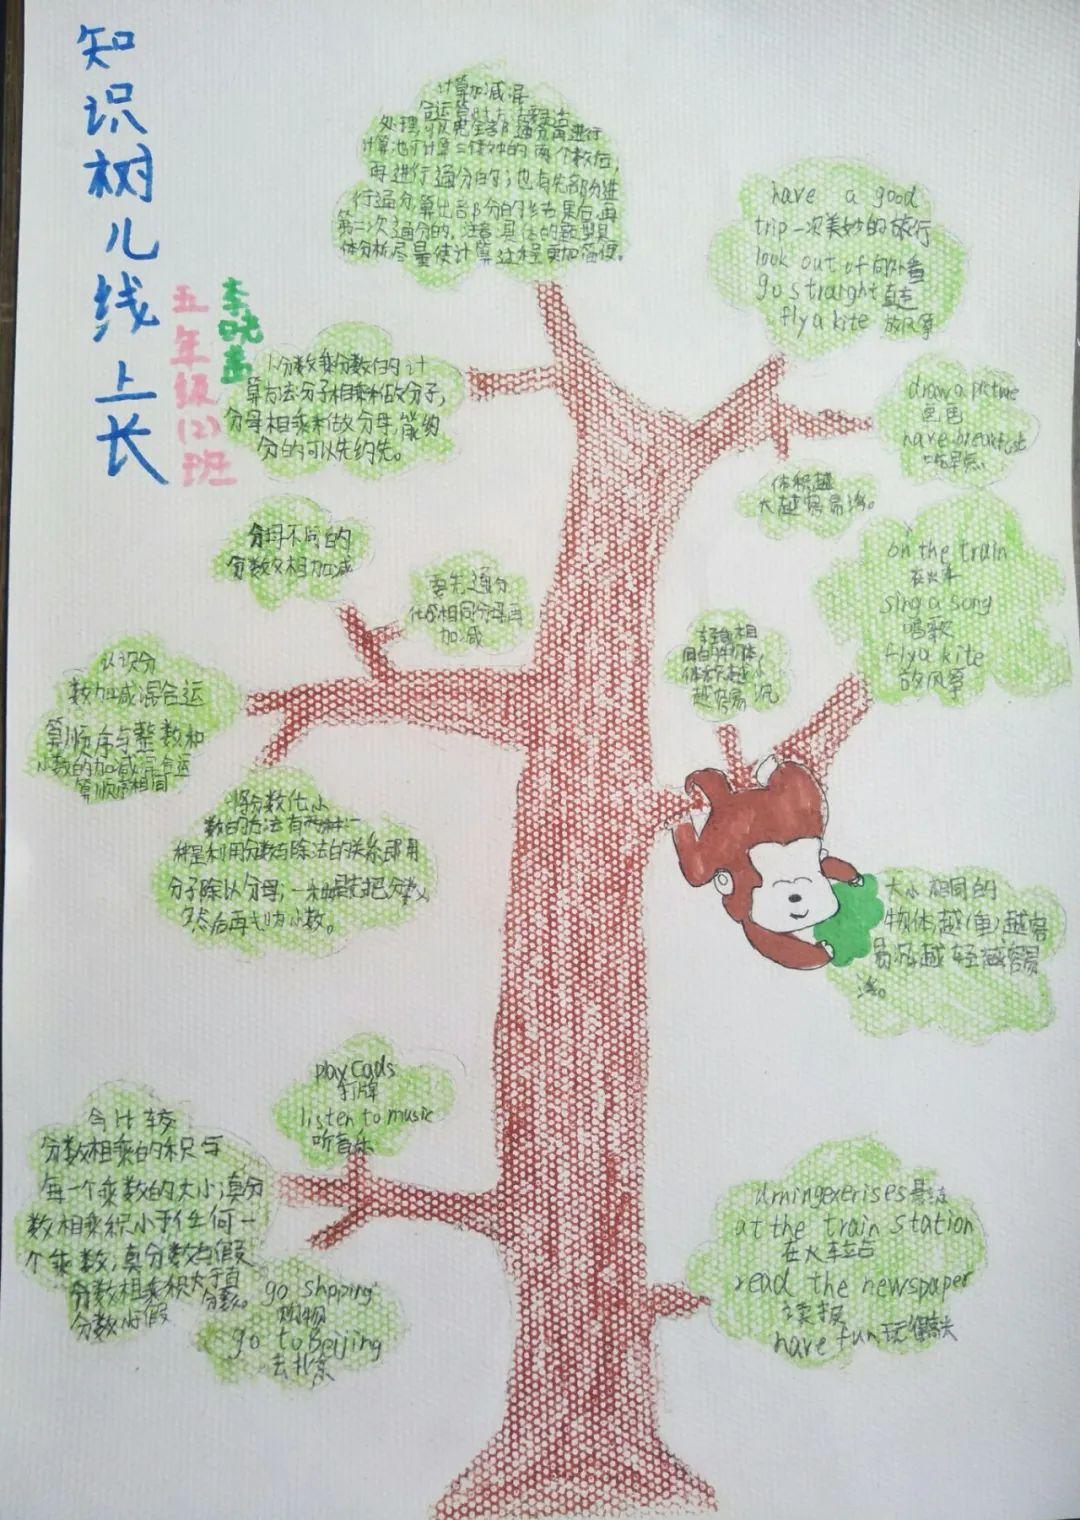 知识树儿线上长
五年级(2)班
计算加减混
合运算时
处理
计算也可计算
两个数后,
再进行通分的;也有先部分进
行通分,算出部分的结果后再
第二次通分的。注意具体的题型具
体分析尽量使计算过程更加简便。
have a good
trip一次美妙的旅行
look out of向外看
go straight直走
fly a kite 放风筝
分数乘分数的计
算方法分子相乘积做分子,
分母相乘积做分母,能约
分的可以先约先。
draw a picture
画画
have breakfast
吃早点
体积越
大越容易浮。
分母不同的
分数相加减
要先通分
化成相同分母再
加减
on the train
在火车
sing a song
唱歌
fly a kite
放风筝
轻重相
同的物体,
体积越小
越容易沉
认识分
数加减混合运
算顺序与整数和
小数的加减混合运
算顺序相同
将分数化小
数的方法有两种一
种是利用分数与除法的关系即用
分子除以分母;一种是先把分数
然后再
小数。
大小相同的
物体越(重)越容
易沉越轻越容易
浮。
play cads
打牌
listen to music
听音乐
分数相乘的积与
每一个乘数的大小:真分
数相乘积小于任何一
个乘数;真分数与假
分数相乘积大于真
分数
分数小假
go shpping
购物
go to Beijing
去北京
at the train station
在火车站
read the newspaper
读报
have fun玩得高兴